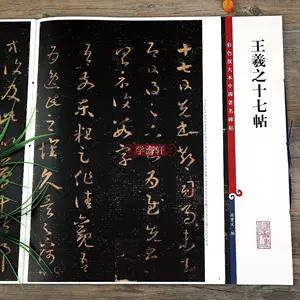 王羲之十七帖
彩色放大本中國著名碑帖
孫寶文 編
十七日先書郗司馬未去
即日得足下書為慰先書
以具示復數字
吾前東粗足作佳觀吾
為逸民之懷久矣足下何